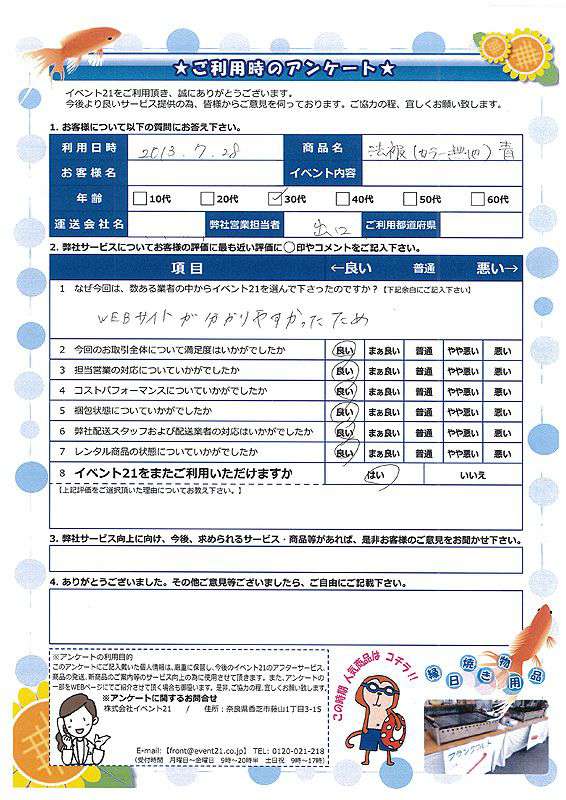 ★ご利用時のアンケート★
イベント21をご利用頂き、誠にありがとうございます。
今後より良いサービス提供の為、皆様からご意見を伺っております。ご協力の程、宜しくお願い致します。
1. お客様について以下の質問にお答え下さい。
利用日時 2013. 7. 28 商品名 法被(カラー無地)青
お客様名 イベント内容
年齢 10代 20代 30代 40代 50代 60代
運送会社名 弊社営業担当者 出口 ご利用都道府県
2. 弊社サービスについてお客様の評価に最も近い評価に○印やコメントをご記入下さい。
項目 ←良い 普通 悪い→
1 なぜ今回は、数ある業者の中からイベント21を選んで下さったのですか?【下記余白にご記入下さい】
WEBサイトが分かりやすかったため
2 今回のお取引全体について満足度はいかがでしたか 良い まぁ良い 普通 やや悪い 悪い
3 担当営業の対応についていかがでしたか 良い まぁ良い 普通 やや悪い 悪い
4 コストパフォーマンスについていかがでしたか 良い まぁ良い 普通 やや悪い 悪い
5 梱包状態についていかがでしたか 良い まぁ良い 普通 やや悪い 悪い
6 弊社配送スタッフおよび配送業者の対応はいかがでしたか 良い まぁ良い 普通 やや悪い 悪い
7 レンタル商品の状態についていかがでしたか 良い まぁ良い 普通 やや悪い 悪い
8 イベント21をまたご利用いただけますか はい いいえ
【上記評価をご選択頂いた理由についてお教え下さい。】
3. 弊社サービス向上に向け、今後、求められるサービス・商品等があれば、是非お客様のご意見をお聞かせ下さい。
4. ありがとうございました。その他ご意見等ございましたら、ご自由にご記載下さい。
※アンケートの利用目的
このアンケートにご記入戴いた個人情報は、厳重に保管し、今後のイベント21のアフターサービス、
商品の発送、新商品のご案内等のサービス向上の為に使用させて頂きます。また、アンケートの
一部をWEBページにてご紹介させて頂く場合も御座います。是非、ご協力の程、宜しくお願い致します。
※アンケートに関するお問合せ
株式会社イベント21 / 住所:奈良県香芝市藤山1丁目3-15
E-mail:【front@event21.co.jp】 TEL: 0120-021-218
(受付時間 月曜日~金曜日 9時~20時半 土日祝 9時~17時)
この時期 人気商品は コチラ!!
縁日焼き物用品
フランクフルト